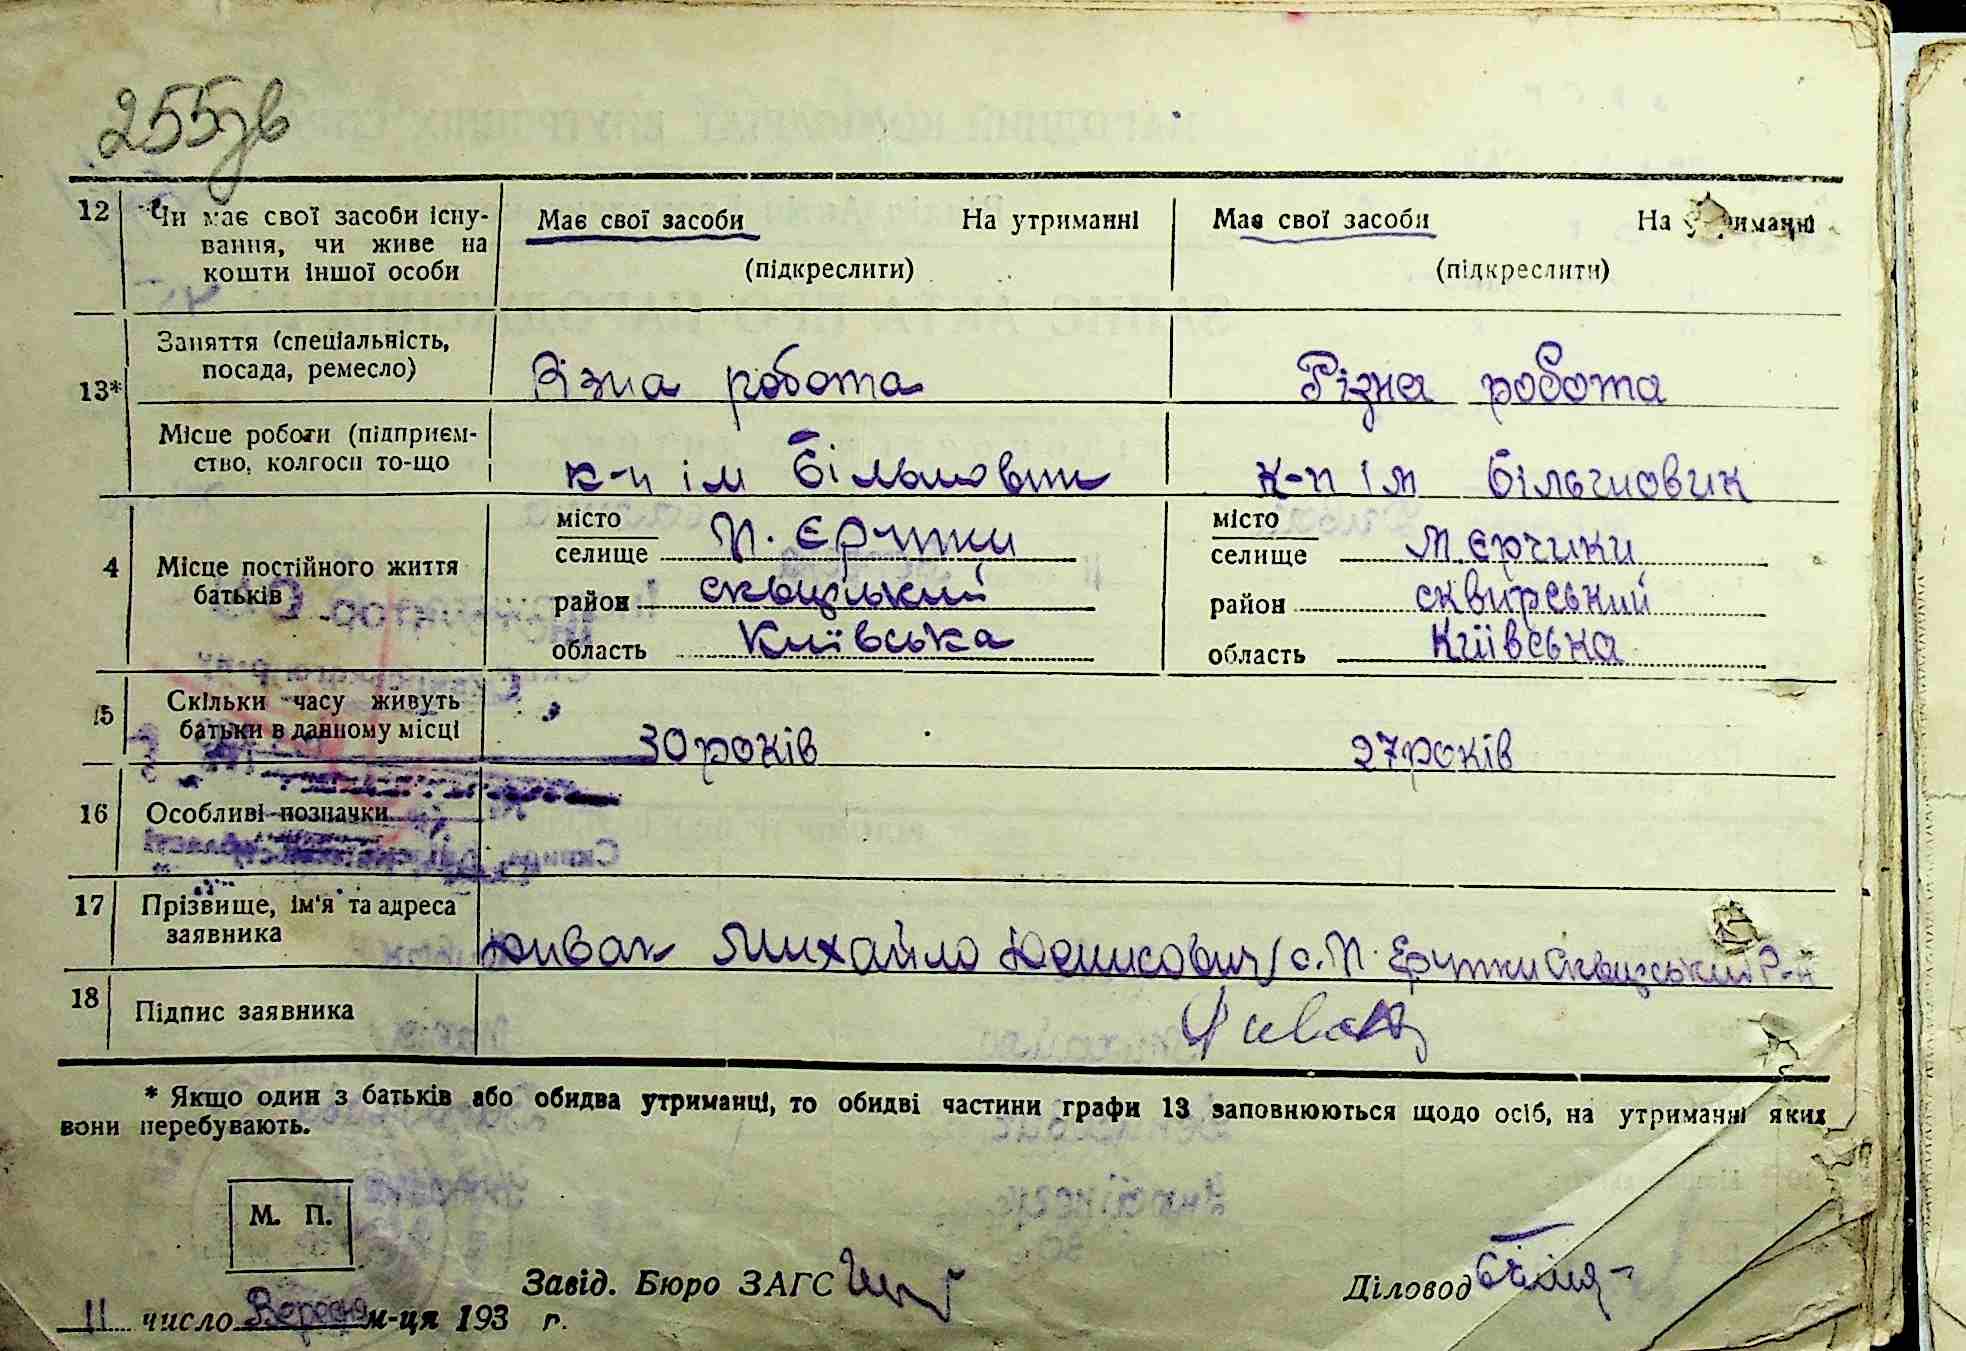 255зв
12 Чи має свої засоби існу-
вання, чи живе на
кошти іншої особи
Має свої засоби На утриманні
(підкреслити)
Має свої засоби На утриманні
(підкреслити)
13* Заняття (спеціальність,
посада, ремесло)
Різна робота
Різна робота
Місце роботи (підприєм-
ство, колгосп то-що
к-п ім Більшовик
к-п ім Більшовик
4 Місце постійного життя
батьків
місто
селище М. Єрчики
район сквирський
область Київська
місто
селище М Єрчики
район сквирський
область Київська
15 Скільки часу живуть
батьки в данному місці
30 років
27 років
16 Особливі позначки
17 Прізвище, ім'я та адреса
заявника
Дивак Михайло Денисович с. М. Єрчики Сквирський р-н
18 Підпис заявника
Дивак
* Якщо один з батьків або обидва утриманці, то обидві частини графи 13 заповнюються щодо осіб, на утриманні яких
вони перебувають.
М. П.
Завід. Бюро ЗАГС
Діловод
11 число Вересня м-ця 193 г.